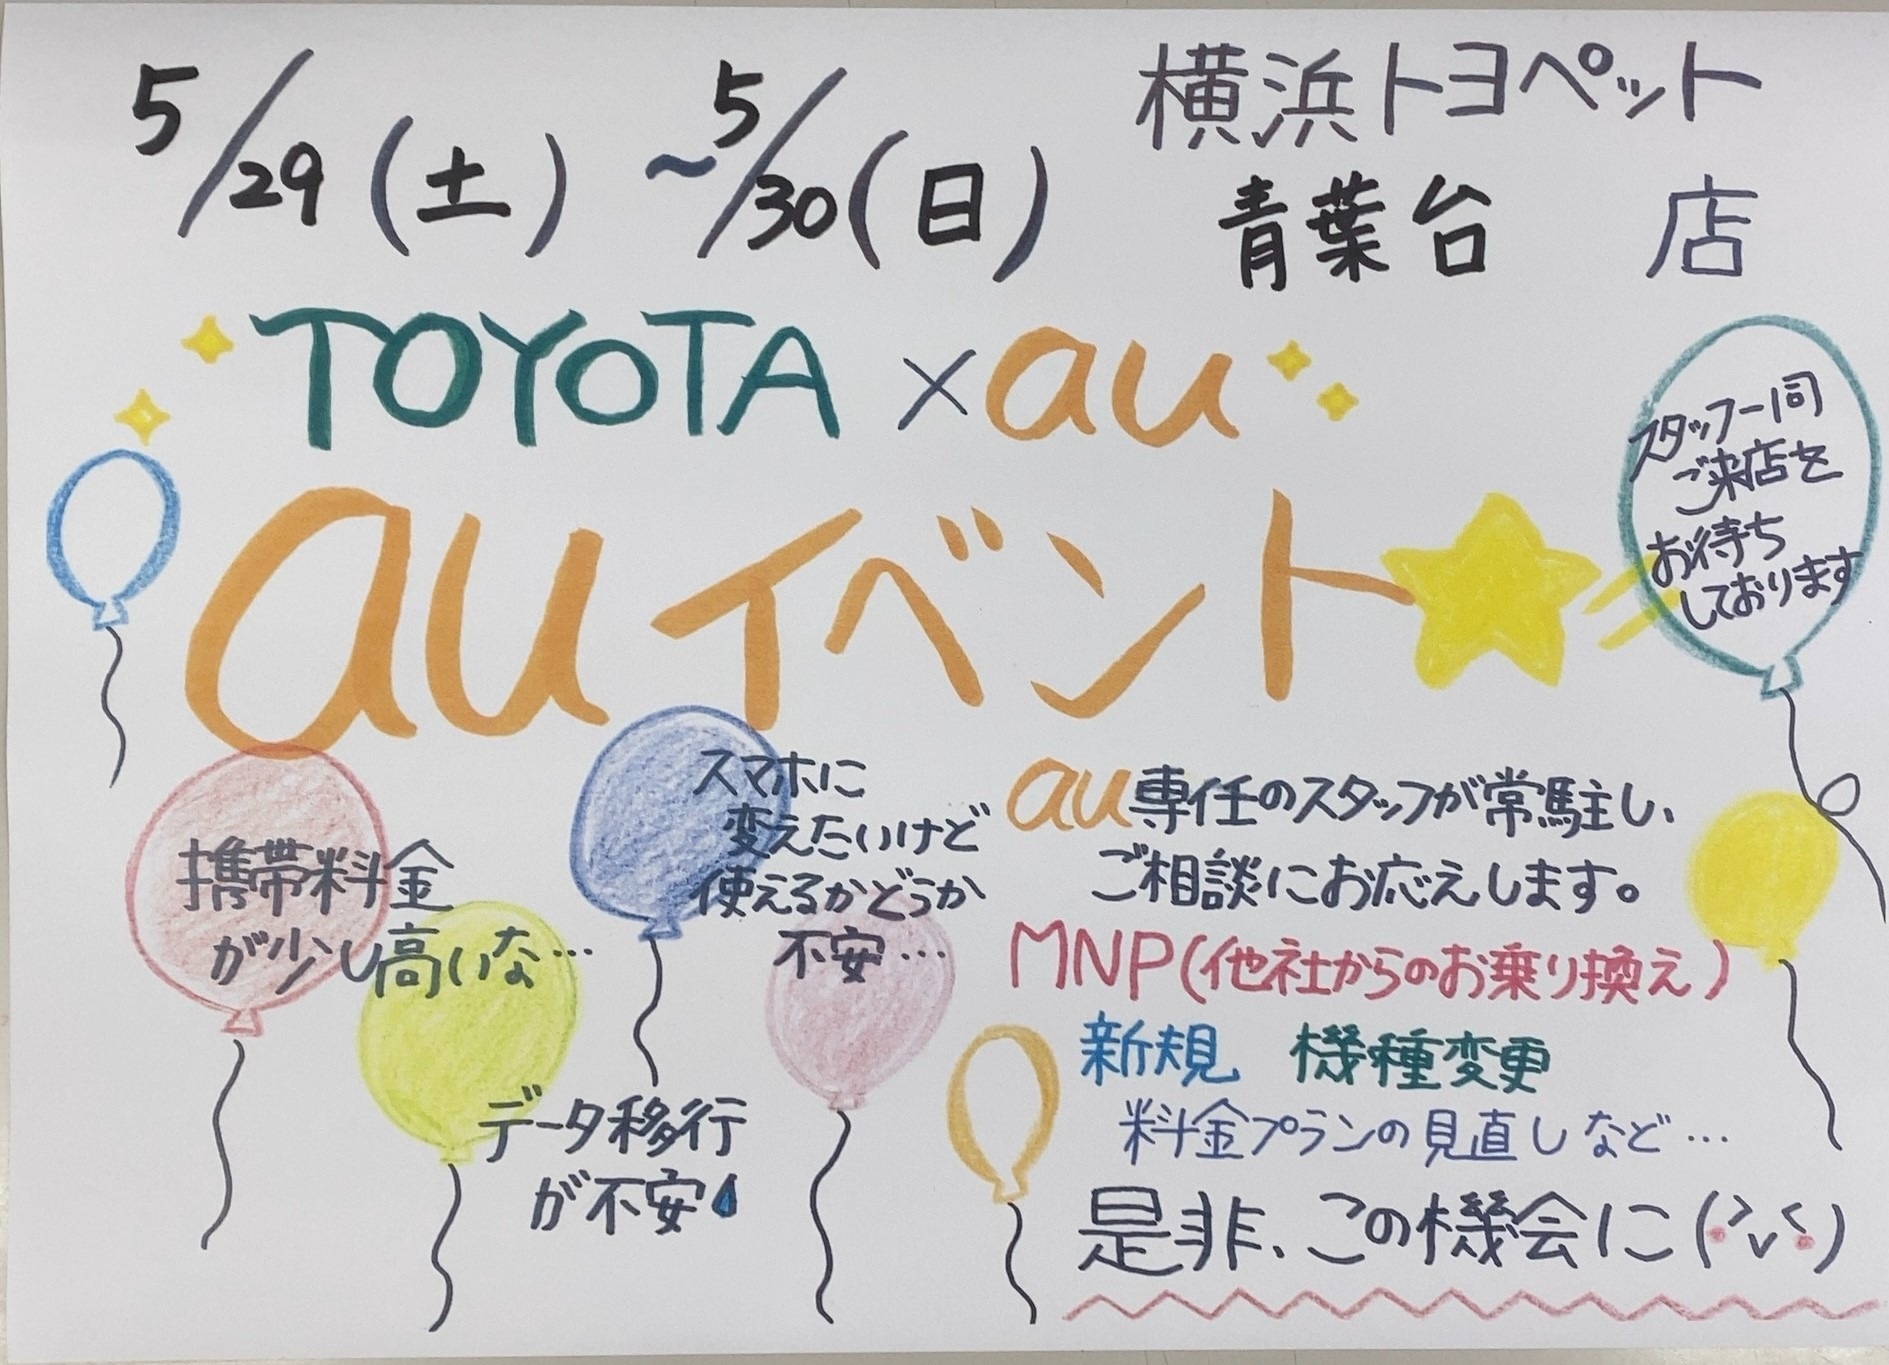 5/29(土) ~5/30(日)
横浜トヨペット
青葉台 店
TOYOTA×au
auイベント
スタッフ一同
ご来店を
お待ち
しております
携帯料金
が少し高いな…
スマホに
変えたいけど
使えるかどうか
不安…
データ移行
が不安
au専任のスタッフが常駐し、
ご相談にお応えします。
MNP(他社からのお乗り換え)
新規 機種変更
料金プランの見直しなど…
是非、この機会に(>v<)